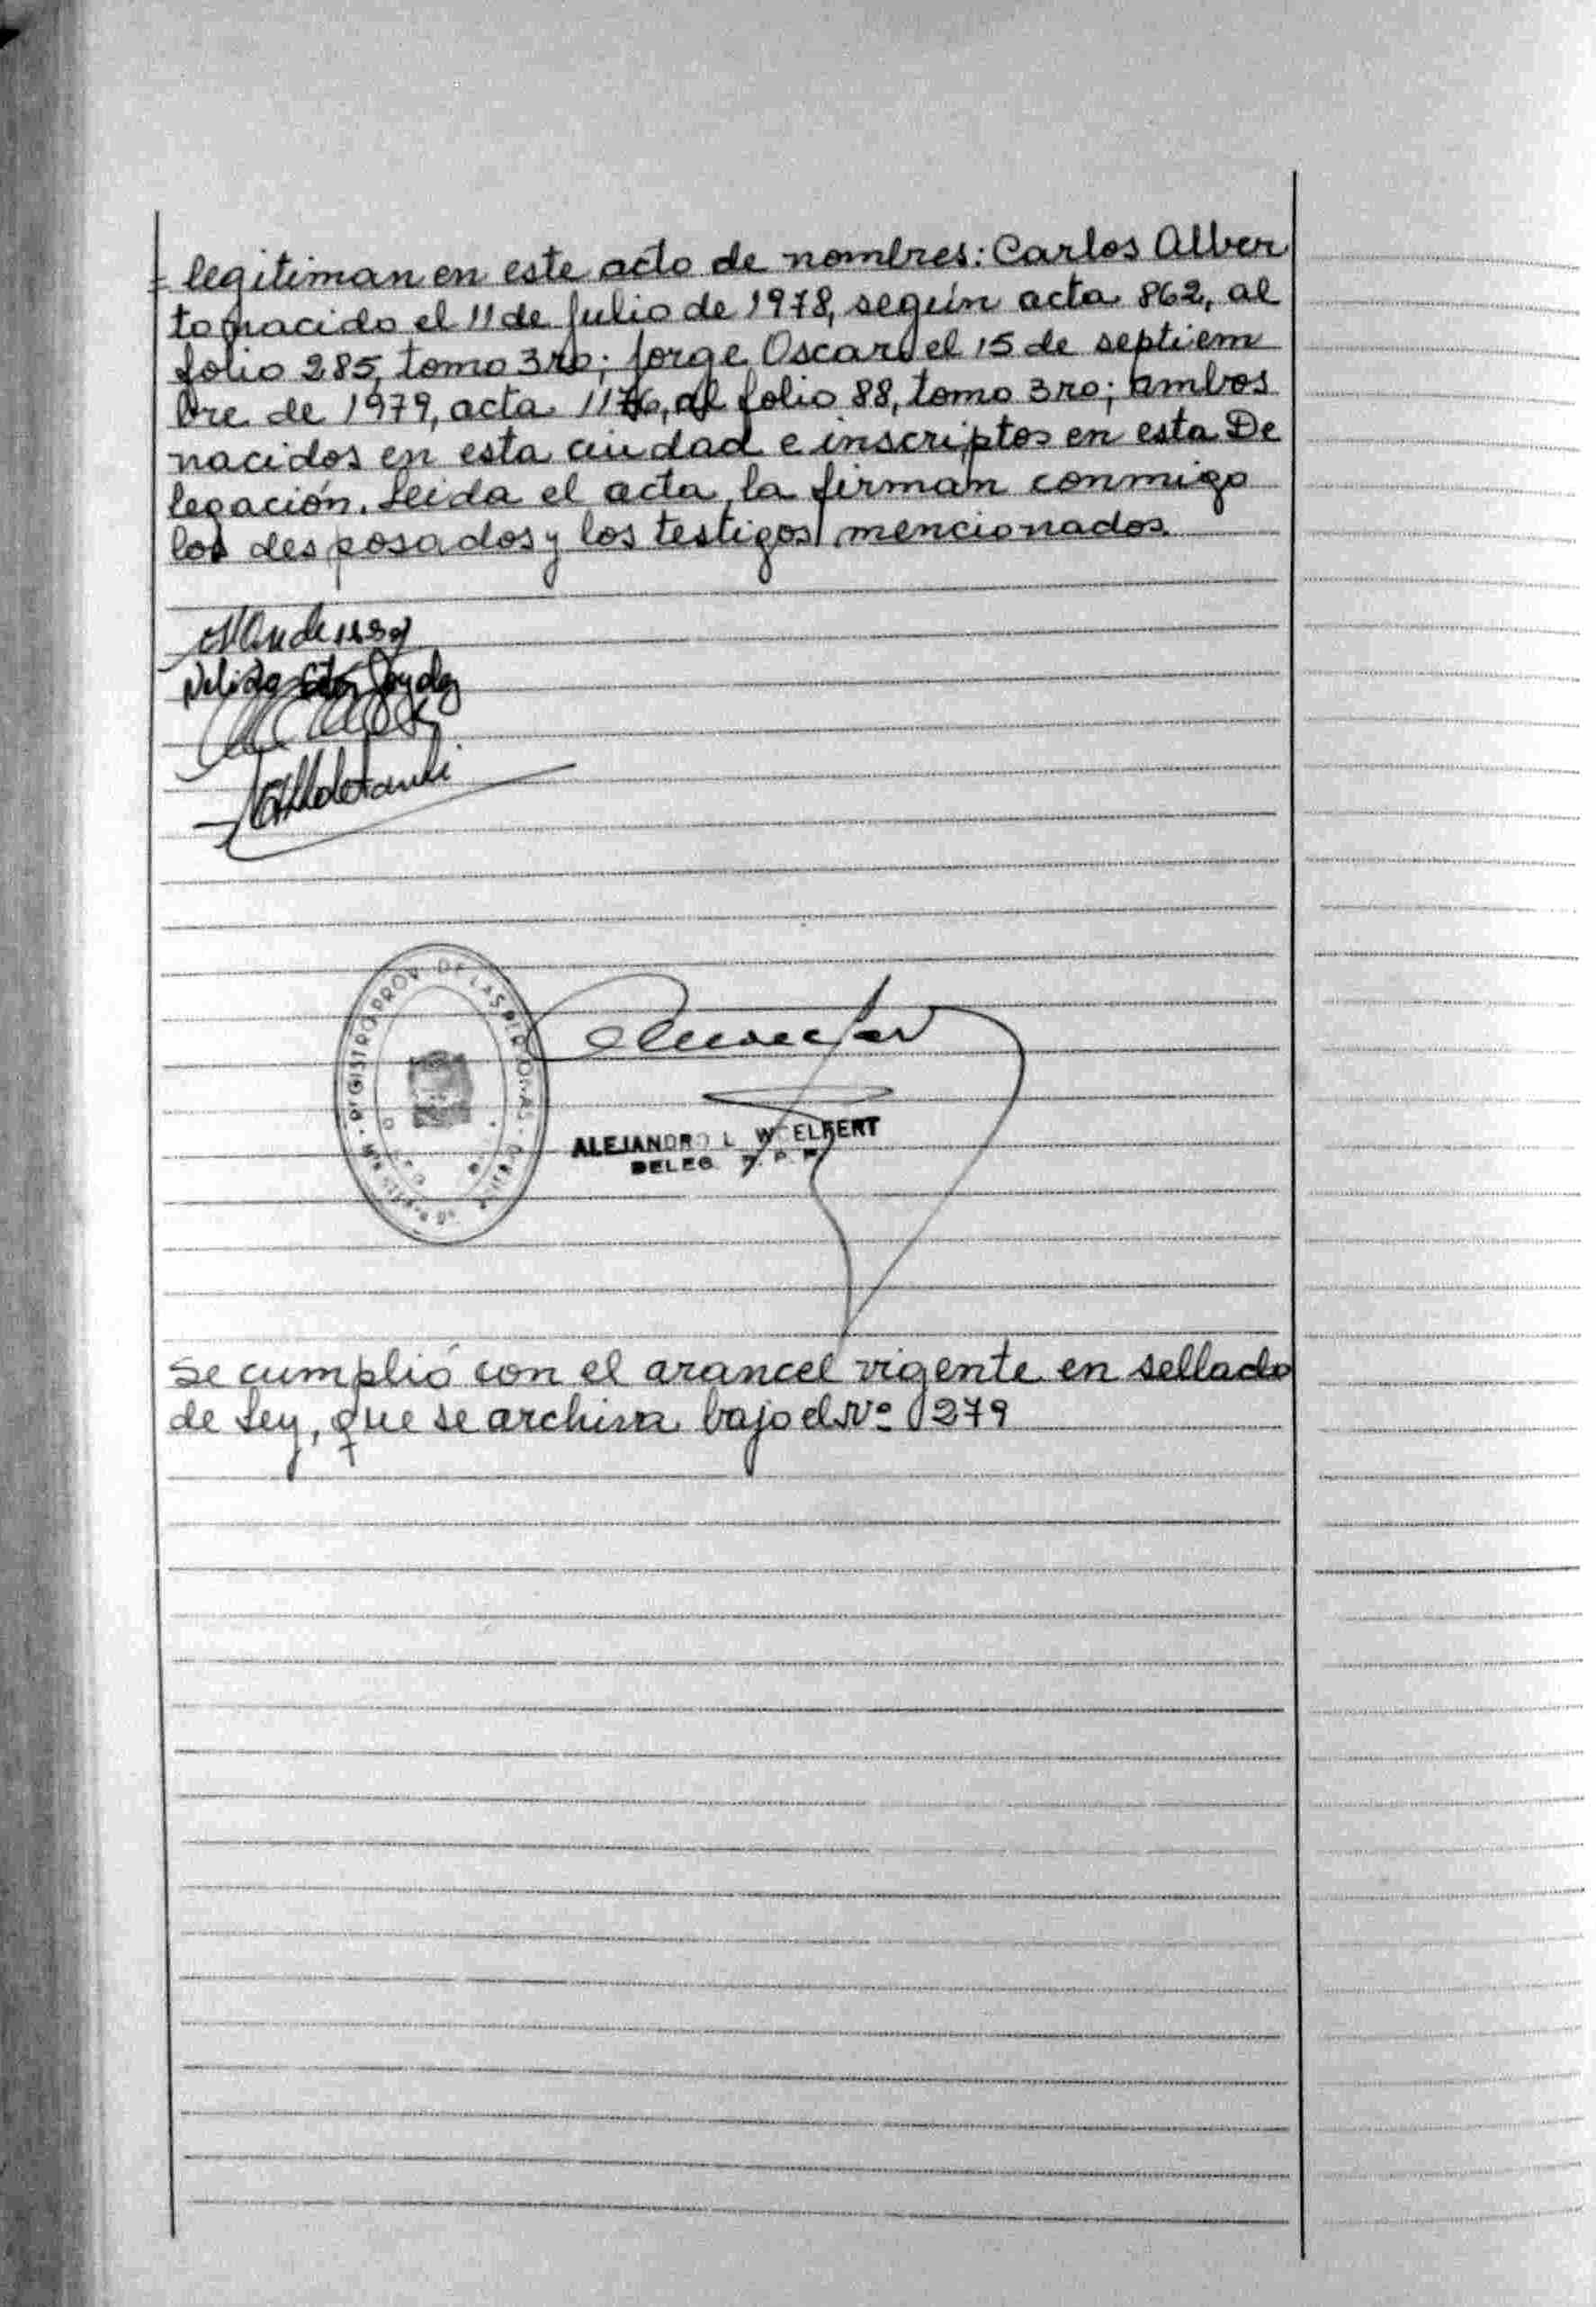 = legitiman en este acto de nombres: Carlos Alber
to nacido el 11 de Julio de 1978, según acta 862, al
folio 285, tomo 3ro; Jorge Oscar, el 15 de septiem
bre de 1979, acta 1176, al folio 88, tomo 3ro; ambos
nacidos en esta ciudad e inscriptos en esta De
legación. Leida el acta, la firman conmigo
los desposados y los testigos mencionados.
Nelida
REGISTRO PROV. DE LAS PERSONAS
ALEJANDRO L. WOELFERT
DELEG. R. P. P.
Se cumplió con el arancel vigente en sellado
de Ley, que se archiva bajo el Nº 279